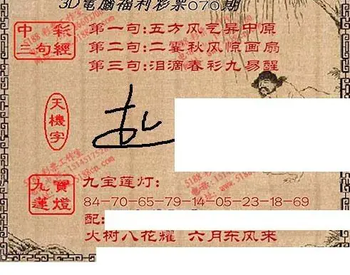 3D電腦福利彩票070期
中彩
三句經
第一句:五方风乞昇中原
第二句:二輩秋风惊画扇
第三句:泪滴春彩九易醒
天機字
九寶
莲燈
九宝莲灯:
84-70-65-79-14-05-23-18-69
配:
火树八花耀 六月东风来